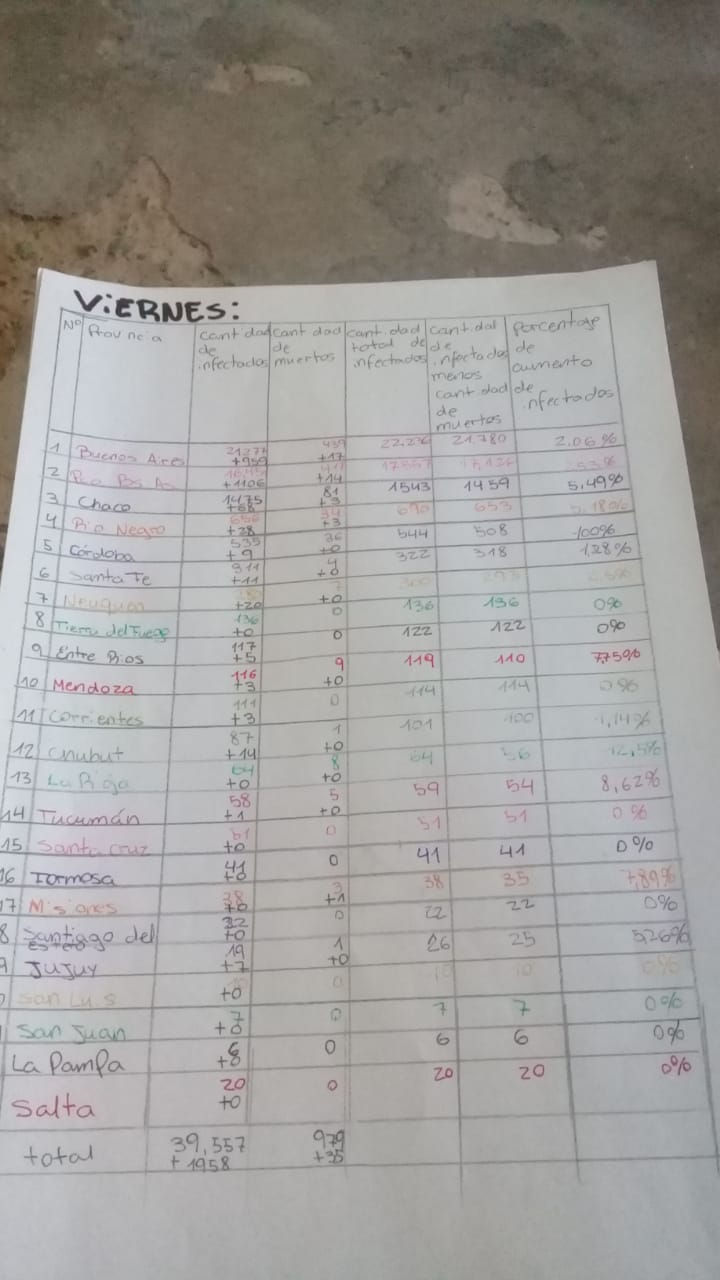 VIERNES:
Nº Provincia cantidad de infectados cantidad de muertos cantidad total de infectados cantidad de infectados menos cantidad de muertos porcentage de aumento de infectados
1 Buenos Aires 21277 +959 439 +17 22.236 21.780 2,06%
2 Bs As +1106 +14
3 Chaco 1475 +68 81 +3 1543 1459 5,49%
4 Rio Negro 656 +28 34 +3 690 653 5,18%
5 Córdoba 535 +9 36 +0 544 508 -100%
6 Santa Fe 311 +11 4 +0 322 318 1,28%
7 Neuquen +20 7 +0 300 293
8 Tierra del Fuego 136 +0 0 136 136 0%
9 Entre Rios 117 +5 0 122 122 0%
10 Mendoza 116 +3 9 +0 119 110 7,75%
11 Corrientes 111 +3 0 114 114 0%
12 Chubut 87 +14 1 +0 101 100 1,14%
13 La Rioja 64 +0 8 +0 64 56 12,5%
14 Tucumán 58 +1 5 +0 59 54 8,62%
15 Santa cruz 51 +0 0 51 51 0%
16 Formosa 41 +0 0 41 41 0%
17 Misiones 38 +0 3 +1 38 35 7,89%
8 Santiago del estero +0 0 22 22 0%
9 JuJuy 19 +7 1 +0 26 25 5,26%
0 San Luis +0 0 10 10 0%
San Juan 7 +0 0 7 7 0%
La Pampa 6 +0 0 6 6 0%
Salta 20 +0 0 20 20 0%
total 39,557 +1958 979 +35